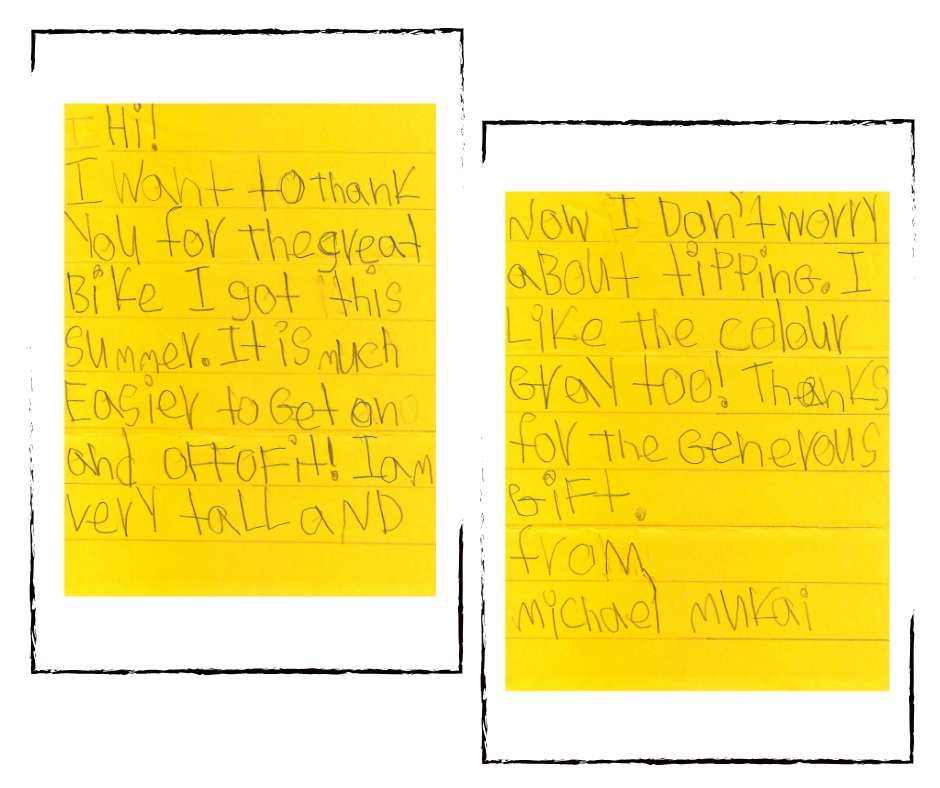 Hi!
I Want to thank
You for the great
Bike I got this
summer. It is much
Easier to Get on
and OFF OF it! I am
very taLL aND
Now I Don't worry
aBOUt tiPPinG. I
Like the colour
GraY too! Thanks
for the Generous
GiFt.
from,
michael mukai